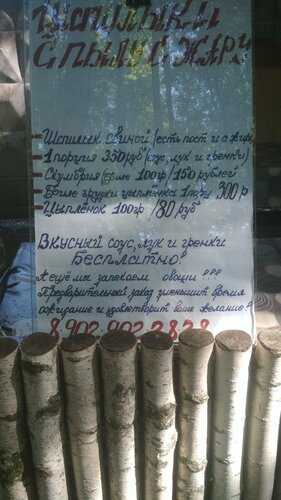 Шашлыки
с пылу с жару
— Шашлык свиной (есть пост и с жир
— 1 порция 350 руб (соус, лук и гренки)
— Скумбрия (филе 100гр / 150 рублей
— Филе грудки цыплёнка 1 порц 300 р
— Цыплёнок 100гр / 80 руб
Вкусный соус, лук и гренки
Бесплатно!
А ещё мы запекаем овощи!!!
Предварительный заказ уменьшит время
ожидание и удовлетворит ваше желание!
8 902 902 28 28